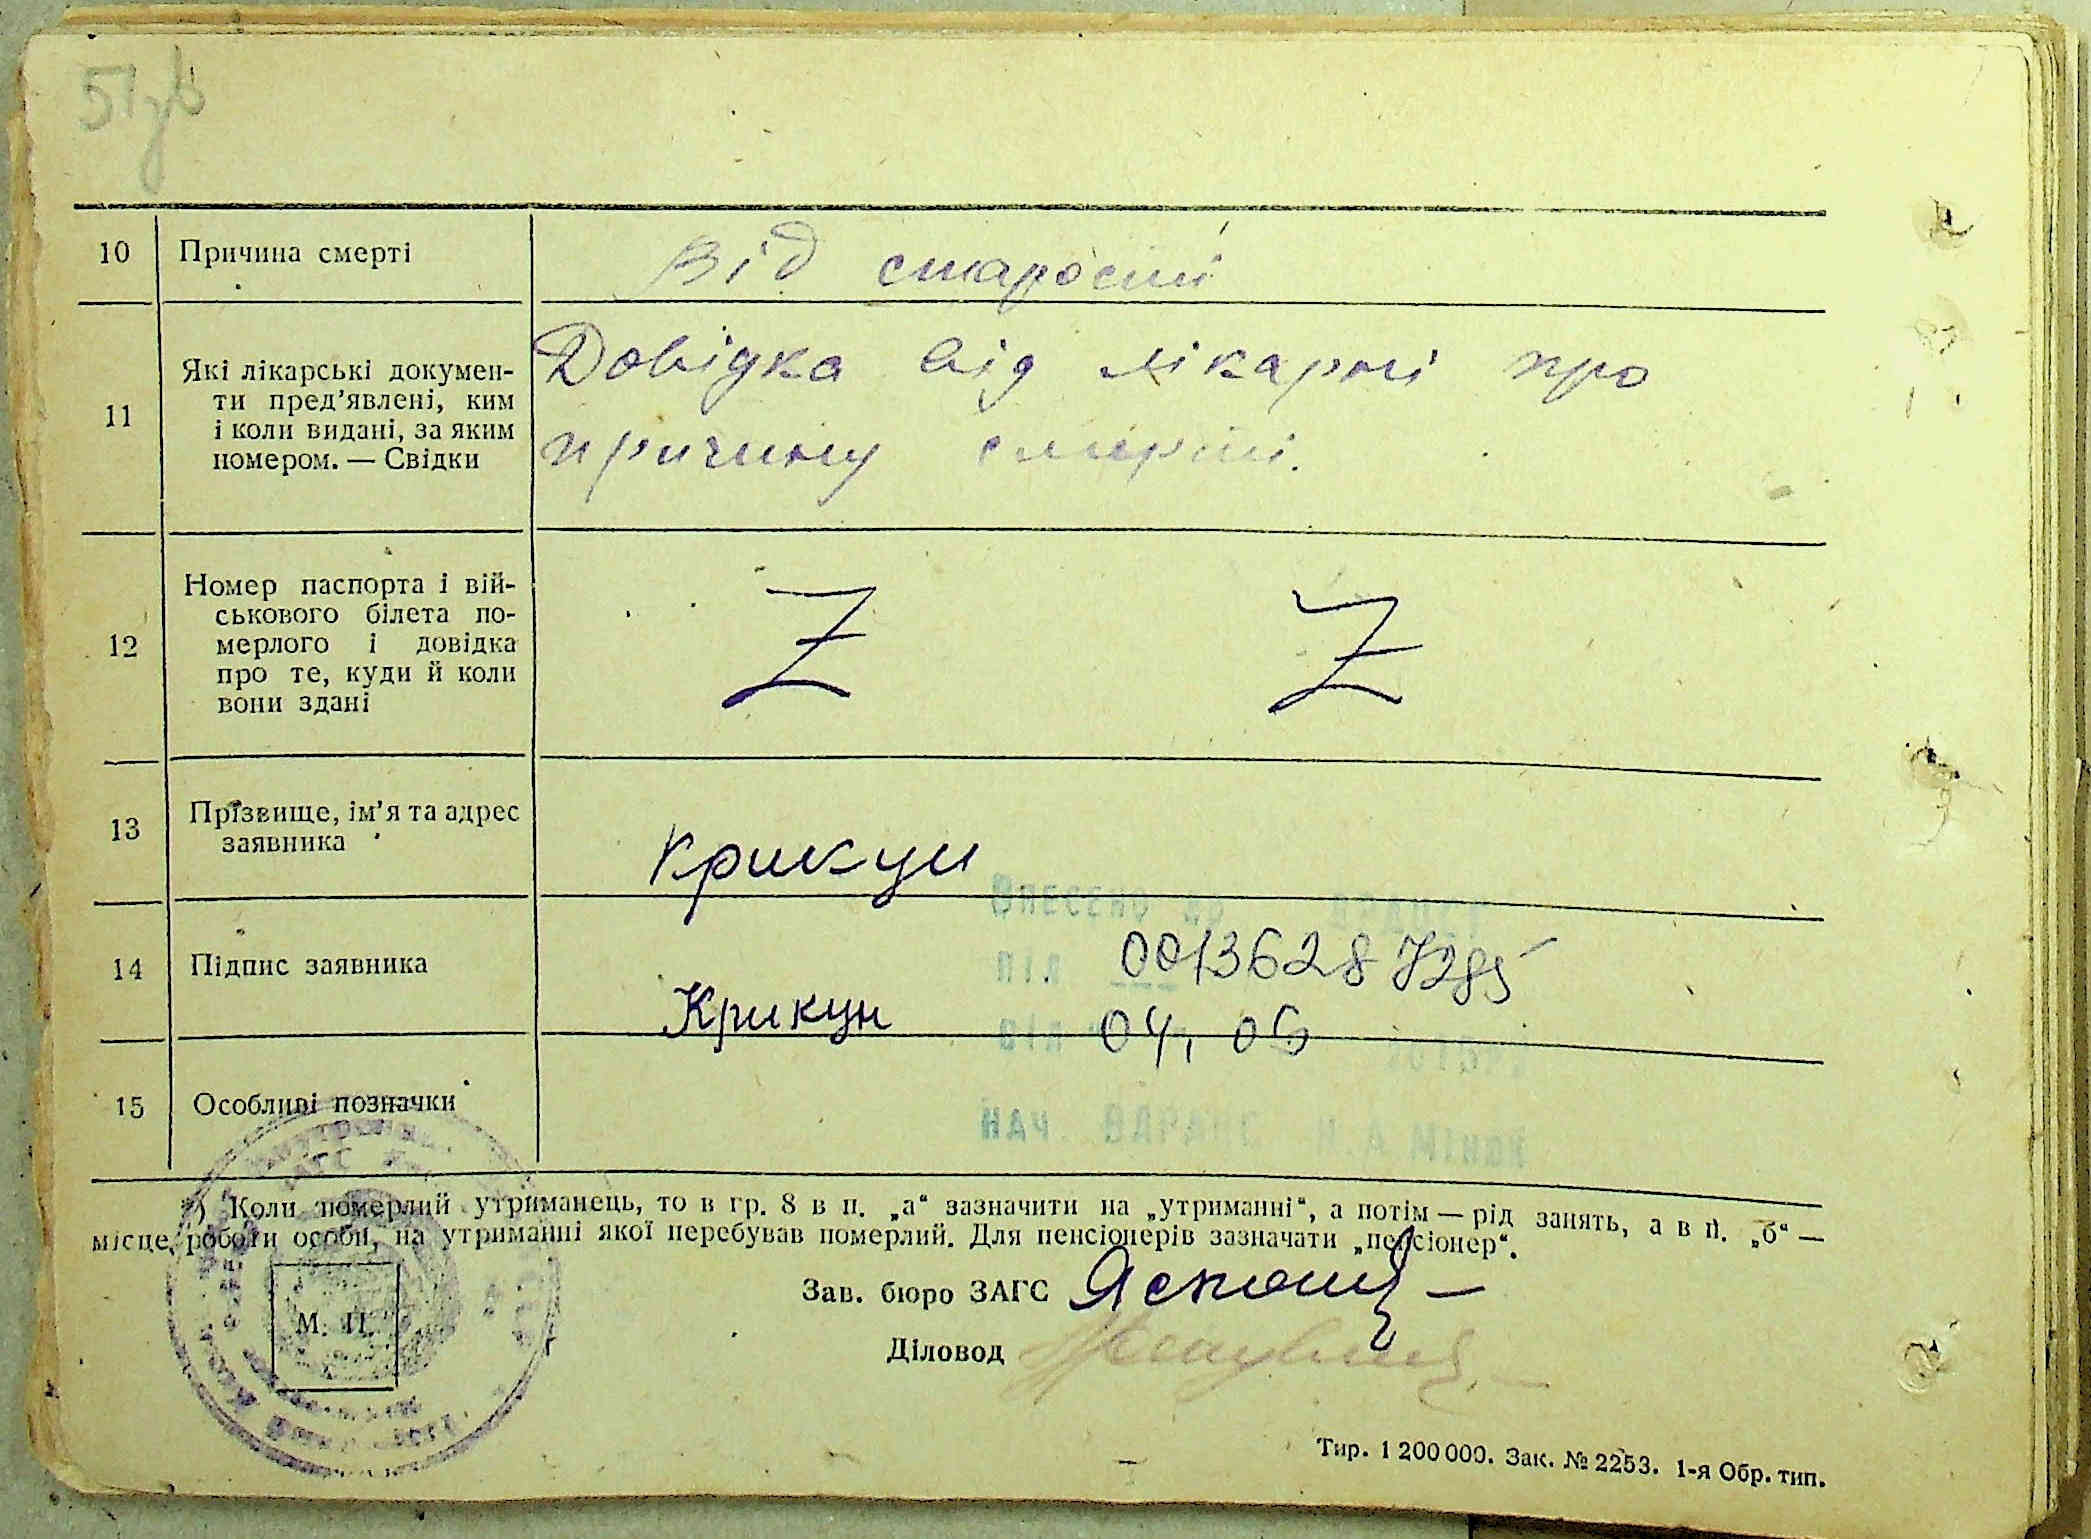 51зв
10 Причина смерті Від старості
11 Які лікарські докумен-
ти пред’явлені, ким
і коли видані, за яким
номером. — Свідки
Довідка від лікарні про
причину смерті.
12 Номер паспорта і вій-
ськового білета по-
мерлого і довідка
про те, куди й коли
вони здані
Z Z
13 Прізвище, ім’я та адрес
заявника
Крикун
Внесено до
14 Підпис заявника
Крикун
піл 00136287285
від 04, 06
15 Особливі позначки
Нач. ВДРАЦС
*) Коли померлий утриманець, то в гр. 8 в п. „а“ зазначити на „утриманні“, а потім — рід занять, а в п. „б“ —
місце роботи особи, на утриманні якої перебував померлий. Для пенсіонерів зазначати „пенсіонер“.
Зав. бюро ЗАГС
Діловод
М. П.
Тир. 1 200 000. Зак. № 2253. 1-я Обр. тип.